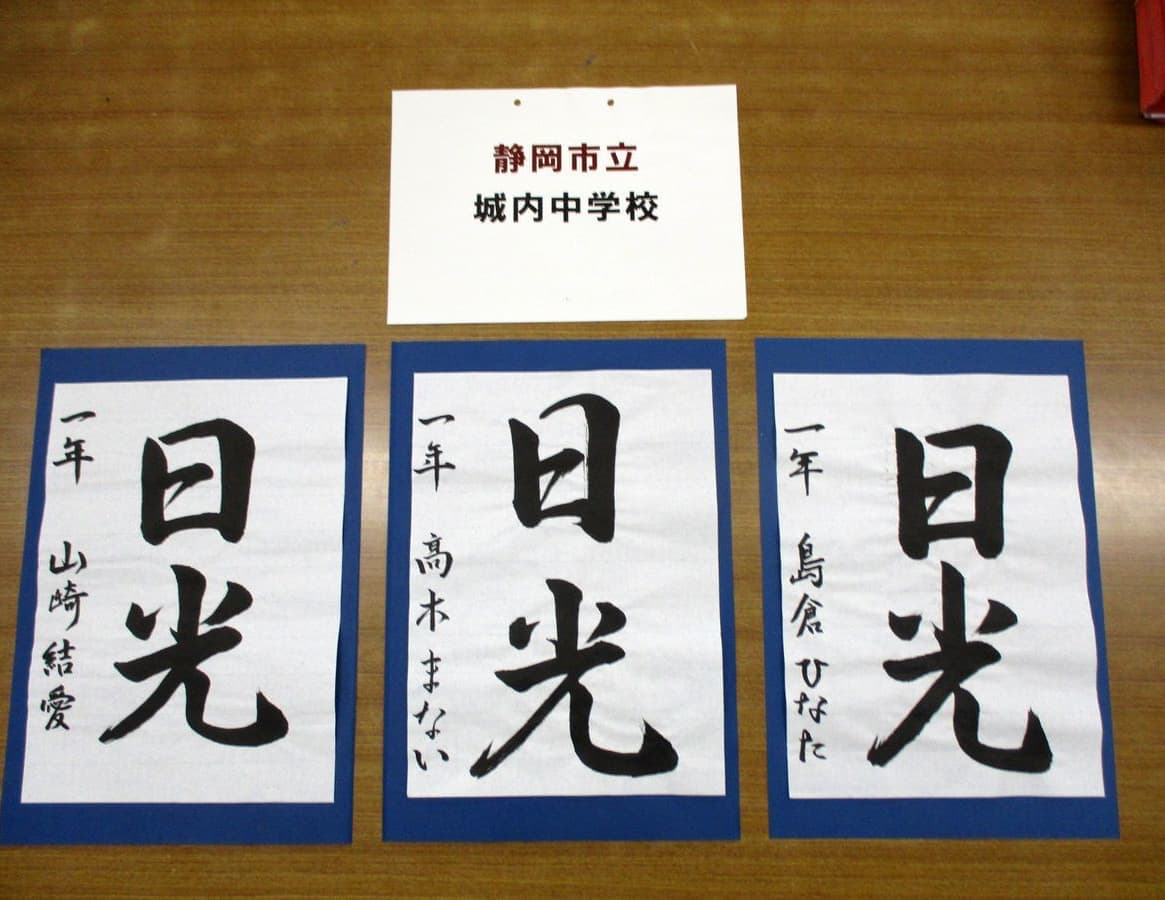 静岡市立
城内中学校
日光
一年 山崎結愛
日光
一年 高木まない
日光
一年 島倉ひなた